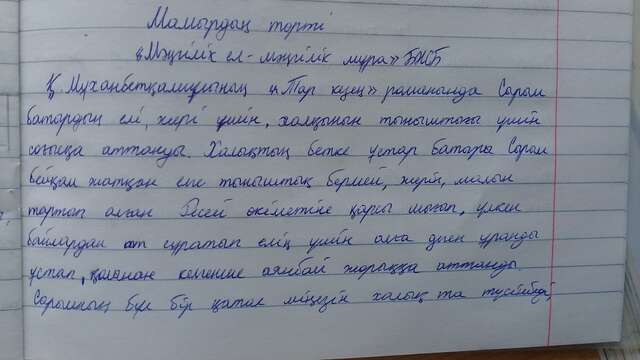 Мамырдың төрті
«Мәңгілік ел - мәңгілік мұра» БЖБ
Қ Мұханбетқалиұлының «Тар кезең» романында Сырым
батырдың елі, жері үшін, халқының тыныштығы үшін
соғысқа аттанды. Халықтың бетке ұстар батыры Сырым
бейқам жатқан елге тыныштық бермей, жерін, малын
тартып алған Ресей өкіметіне қарсы шығып, үлкен
байлардан ат сұратып елің үшін алға деген ұранды
ұстап, қолынан келгенше аянбай жорыққа аттанды.
Сырымның бұл бір қатал мінезін халық та түсінбеді,